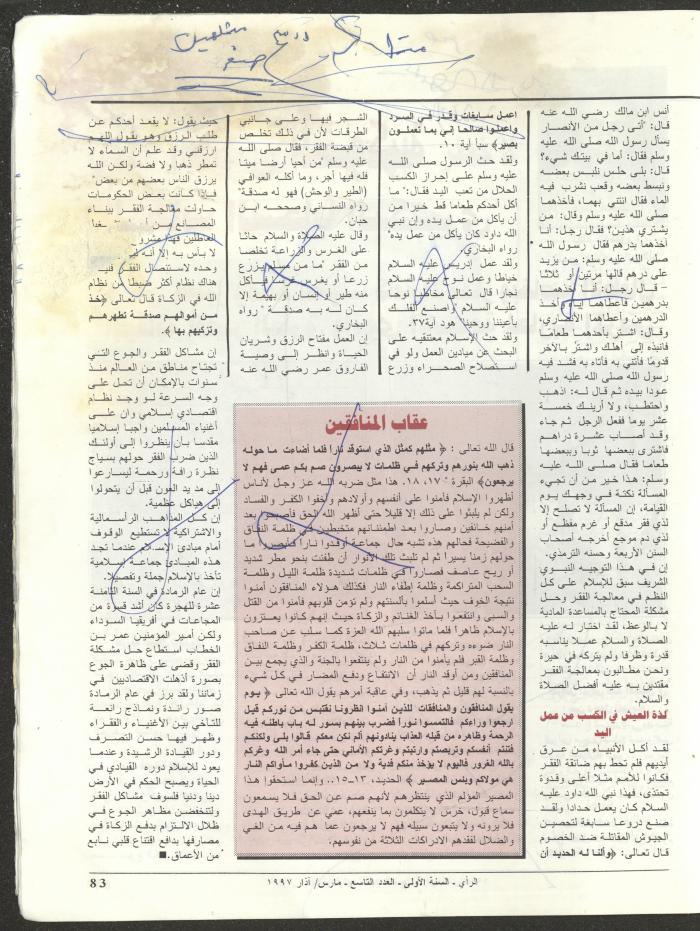 أنس ابن مالك رضي الله عنه
قال: "أتى رجل من الأنصار
يسأل رسول الله صلى الله عليه
وسلم فقال: أما في بيتك شيء؟
قال: بلى حلس نلبس بعضه
ونبسط بعضه وقعب نشرب فيه
الماء فقال ائتني بهما، فأخذهما
صلى الله عليه وسلم وقال: من
يشتري هذين؟ فقال رجل: أنا
آخذهما بدرهم فقال رسول الله
صلى الله عليه وسلم: من يزيد
على درهم قالها مرتين أو ثلاثا
- قال رجل: أنا آخذهما
بدرهمين فأعطاهما إياه وأخذ
الدرهمين وأعطاهما الأنصاري،
وقال: اشتر بأحدهما طعاما
فانبذه إلى أهلك واشتر بالآخر
قدوما فأتني به فأتاه به فشد فيه
رسول الله صلى الله عليه وسلم
عودا بيده ثم قال له: اذهب
واحتطب، ولا أرينك خمسة
عشر يوما ففعل الرجل ثم جاء
وقد أصاب عشرة دراهم
فاشترى ببعضها ثوبا وببعضها
طعاما فقال صلى الله عليه
وسلم: هذا خير من أن تجيء
المسألة نكتة في وجهك يوم
القيامة، إن المسألة لا تصلح إلا
لذي فقر مدقع أو غرم مفظع أو
لذي دم موجع أخرجه أصحاب
السنن الأربعة وحسنه الترمذي.
إن في هذا التوجيه النبوي
الشريف سبق للإسلام على كل
النظم في معالجة الفقر وحل
مشكلة المحتاج بالمساعدة المادية
لا بالوعظ، لقد اختار له عليه
الصلاة والسلام عملا يناسبه
قدرة وظرفا ولم يتركه في حيرة
ونحن مطالبون بمعالجة الفقر
مقتدين به عليه أفضل الصلاة
والسلام.
لذة العيش في الكسب من عمل
اليد
لقد أكل الأنبياء من عرق
أيديهم فلم تحط بهم ضائقة الفقر
فكانوا للأمم مثلا أعلى وقدوة
تحتذى، فهذا نبي الله داود عليه
السلام كان يعمل حدادا ولقد
صنع دروعا سابغة لتحصين
الجيوش المقاتلة ضد الخصوم
قال تعالى: ﴿وألنا له الحديد أن
اعمل سابغات وقدر في السرد
واعملوا صالحا إني بما تعملون
بصير﴾ سبأ آية ١٠.
ولقد حث الرسول صلى الله
عليه وسلم على إحراز الكسب
الحلال من تعب اليد فقال: "ما
أكل أحدكم طعاما قط خيرا من
أن يأكل من عمل يده وإن نبي
الله داود كان يأكل من عمل يده"
رواه البخاري.
ولقد عمل إدريس عليه السلام
خياطا وعمل نوح عليه السلام
نجارا قال تعالى مخاطبا نوحا
عليه السلام ﴿واصنع الفلك
بأعيننا ووحينا﴾ هود آية٣٧.
ولقد حث الإسلام معتنقيه على
البحث عن ميادين العمل ولو في
استصلاح الصحراء وزرع
الشجر فيها وعلى جانبي
الطرقات لأن في ذلك تخلص
من قبضة الفقر، فقال صلى الله
عليه وسلم "من أحيا أرضا ميتا
فله فيها أجر، وما أكله العوافي
(الطير والوحش) فهو له صدقة"
رواه النسائي وصححه ابن
حبان.
وقال عليه الصلاة والسلام حاثا
على الغرس والزراعة تخلصا
من الفقر "ما من مسلم يزرع
زرعا أو يغرس غرسا فيأكل
منه طير أو إنسان أو بهيمة إلا
كان له به صدقة" رواه
البخاري.
إن العمل مفتاح الرزق وشريان
الحياة وانظر إلى وصية
الفاروق عمر رضي الله عنه
حيث يقول: لا يقعد أحدكم عن
طلب الرزق وهو يقول اللهم
ارزقني وقد علم أن السماء لا
تمطر ذهبا ولا فضة ولكن الله
يرزق الناس بعضهم من بعض"
فإذا كانت بعض الحكومات
حاولت معالجة الفقر ببناء
المصانع
للعاطلين فهذا مشروع
لا بأس به إلا أنه
وحده لاستئصال الفقر
هناك نظام أكثر ضبطا من نظام
الله في الزكاة قال تعالى ﴿خذ
من أموالهم صدقة تطهرهم
وتزكيهم بها﴾.
إن مشاكل الفقر والجوع التي
تجتاح مناطق من العالم منذ
سنوات بالإمكان أن تحل على
وجه السرعة لو وجد نظام
اقتصادي إسلامي وإن على
أغنياء المسلمين واجبا إسلاميا
مقدسا بأن ينظروا إلى أولئك
الذين ضرب الفقر حولهم بسياج
نظرة رأفة ورحمة ليسارعوا
إلى مد يد العون قبل أن يتحولوا
إلى هياكل عظمية.
إن كل المذاهب الرأسمالية
والاشتراكية لا تستطيع الوقوف
أمام مبادئ الإسلام عندما تجد
هذه المبادئ جماعة إسلامية
تأخذ بالإسلام جملة وتفصيلا.
إن عام الرمادة في السنة الثامنة
عشرة للهجرة كان أشد قسوة من
المجاعات في أفريقيا السوداء
ولكن أمير المؤمنين عمر بن
الخطاب استطاع حل مشكلة
الفقر وقضى على ظاهرة الجوع
بصورة أذهلت الاقتصاديين في
زماننا ولقد برز في عام الرمادة
صور رائدة ونماذج رائعة
للتآخي بين الأغنياء والفقراء
وظهر فيها حسن التصرف
ودور القيادة الرشيدة وعندما
يعود للإسلام دوره القيادي في
الحياة ويصبح الحكم في الأرض
دينا ودنيا فلسوف مشاكل الفقر
ولتنخفضن مظاهر الجوع في
ظلال الالتزام بدفع الزكاة في
مصارفها بدافع اقتناع قلبي نابع
من الأعماق.■
عقاب المنافقين
قال الله تعالى : ﴿ مثلهم كمثل الذي استوقد نارا فلما أضاءت ما حوله
ذهب الله بنورهم وتركهم في ظلمات لا يبصرون صم بكم عمي فهم لا
يرجعون﴾ البقرة "١٧، ١٨. هذا مثل ضربه الله عز وجل لأناس
أظهروا الإسلام فأمنوا على أنفسهم وأولادهم وأخفوا الكفر والفساد
ولكن لم يلبثوا على ذلك إلا قليلا حتى أظهر الله الحق فأصبحوا بعد
أمنهم خائفين وصاروا بعد اطمئنانهم متخبطين في ظلمة النفاق
والفضيحة فحالهم هذه تشبه حال جماعة أوقدوا نارا فأبصروا ما
حولهم زمنا يسيرا ثم لم تلبث تلك الأنوار أن طفئت بنحو مطر شديد
أو ريح عاصف فصاروا في ظلمات شديدة ظلمة الليل وظلمة
السحب المتراكمة وظلمة إطفاء النار فكذلك هؤلاء المنافقون أمنوا
نتيجة الخوف حيث أسلموا بألسنتهم ولم تؤمن قلوبهم فأمنوا من القتل
والسبي وانتفعوا بأخذ الغنائم والزكاة حيث إنهم كانوا يعتزون
بالإسلام ظاهرا فلما ماتوا سلبهم الله العزة كما سلب عن صاحب
النار ضوءه وتركهم في ظلمات ثلاث، ظلمة الكفر وظلمة النفاق
وظلمة القبر فلم يأمنوا من النار ولم ينتفعوا بالجنة والذي يجمع بين
المنافقين ومن أوقد النار أن الانتفاع ودفع المضار في كل شيء
بالنسبة لهم قليل ثم يذهب، وفي عاقبة أمرهم يقول الله تعالى ﴿ يوم
يقول المنافقون والمنافقات للذين آمنوا انظرونا نقتبس من نوركم قيل
ارجعوا وراءكم فالتمسوا نورا فضرب بينهم بسور له باب باطنه فيه
الرحمة وظاهره من قبله العذاب ينادونهم ألم نكن معكم قالوا بلى ولكنكم
فتنتم أنفسكم وتربصتم وارتبتم وغرتكم الأماني حتى جاء أمر الله وغركم
بالله الغرور فاليوم لا يؤخذ منكم فدية ولا من الذين كفروا مأواكم النار
هي مولاكم وبئس المصير ﴾ الحديد، ١٣-١٥.. وإنما استحقوا هذا
المصير المؤلم الذي ينتظرهم لأنهم صم عن الحق فلا يسمعون
سماع قبول، خرس لا يتكلمون بما ينفعهم، عمي عن طريق الهدى
فلا يرونه ولا يتبعون سبيله فهم لا يرجعون عما هم فيه من الغي
والضلال لفقدهم الإدراكات الثلاثة من نفوسهم.
الرأي - السنة الأولى - العدد التاسع - مارس/ آذار ١٩٩٧
83